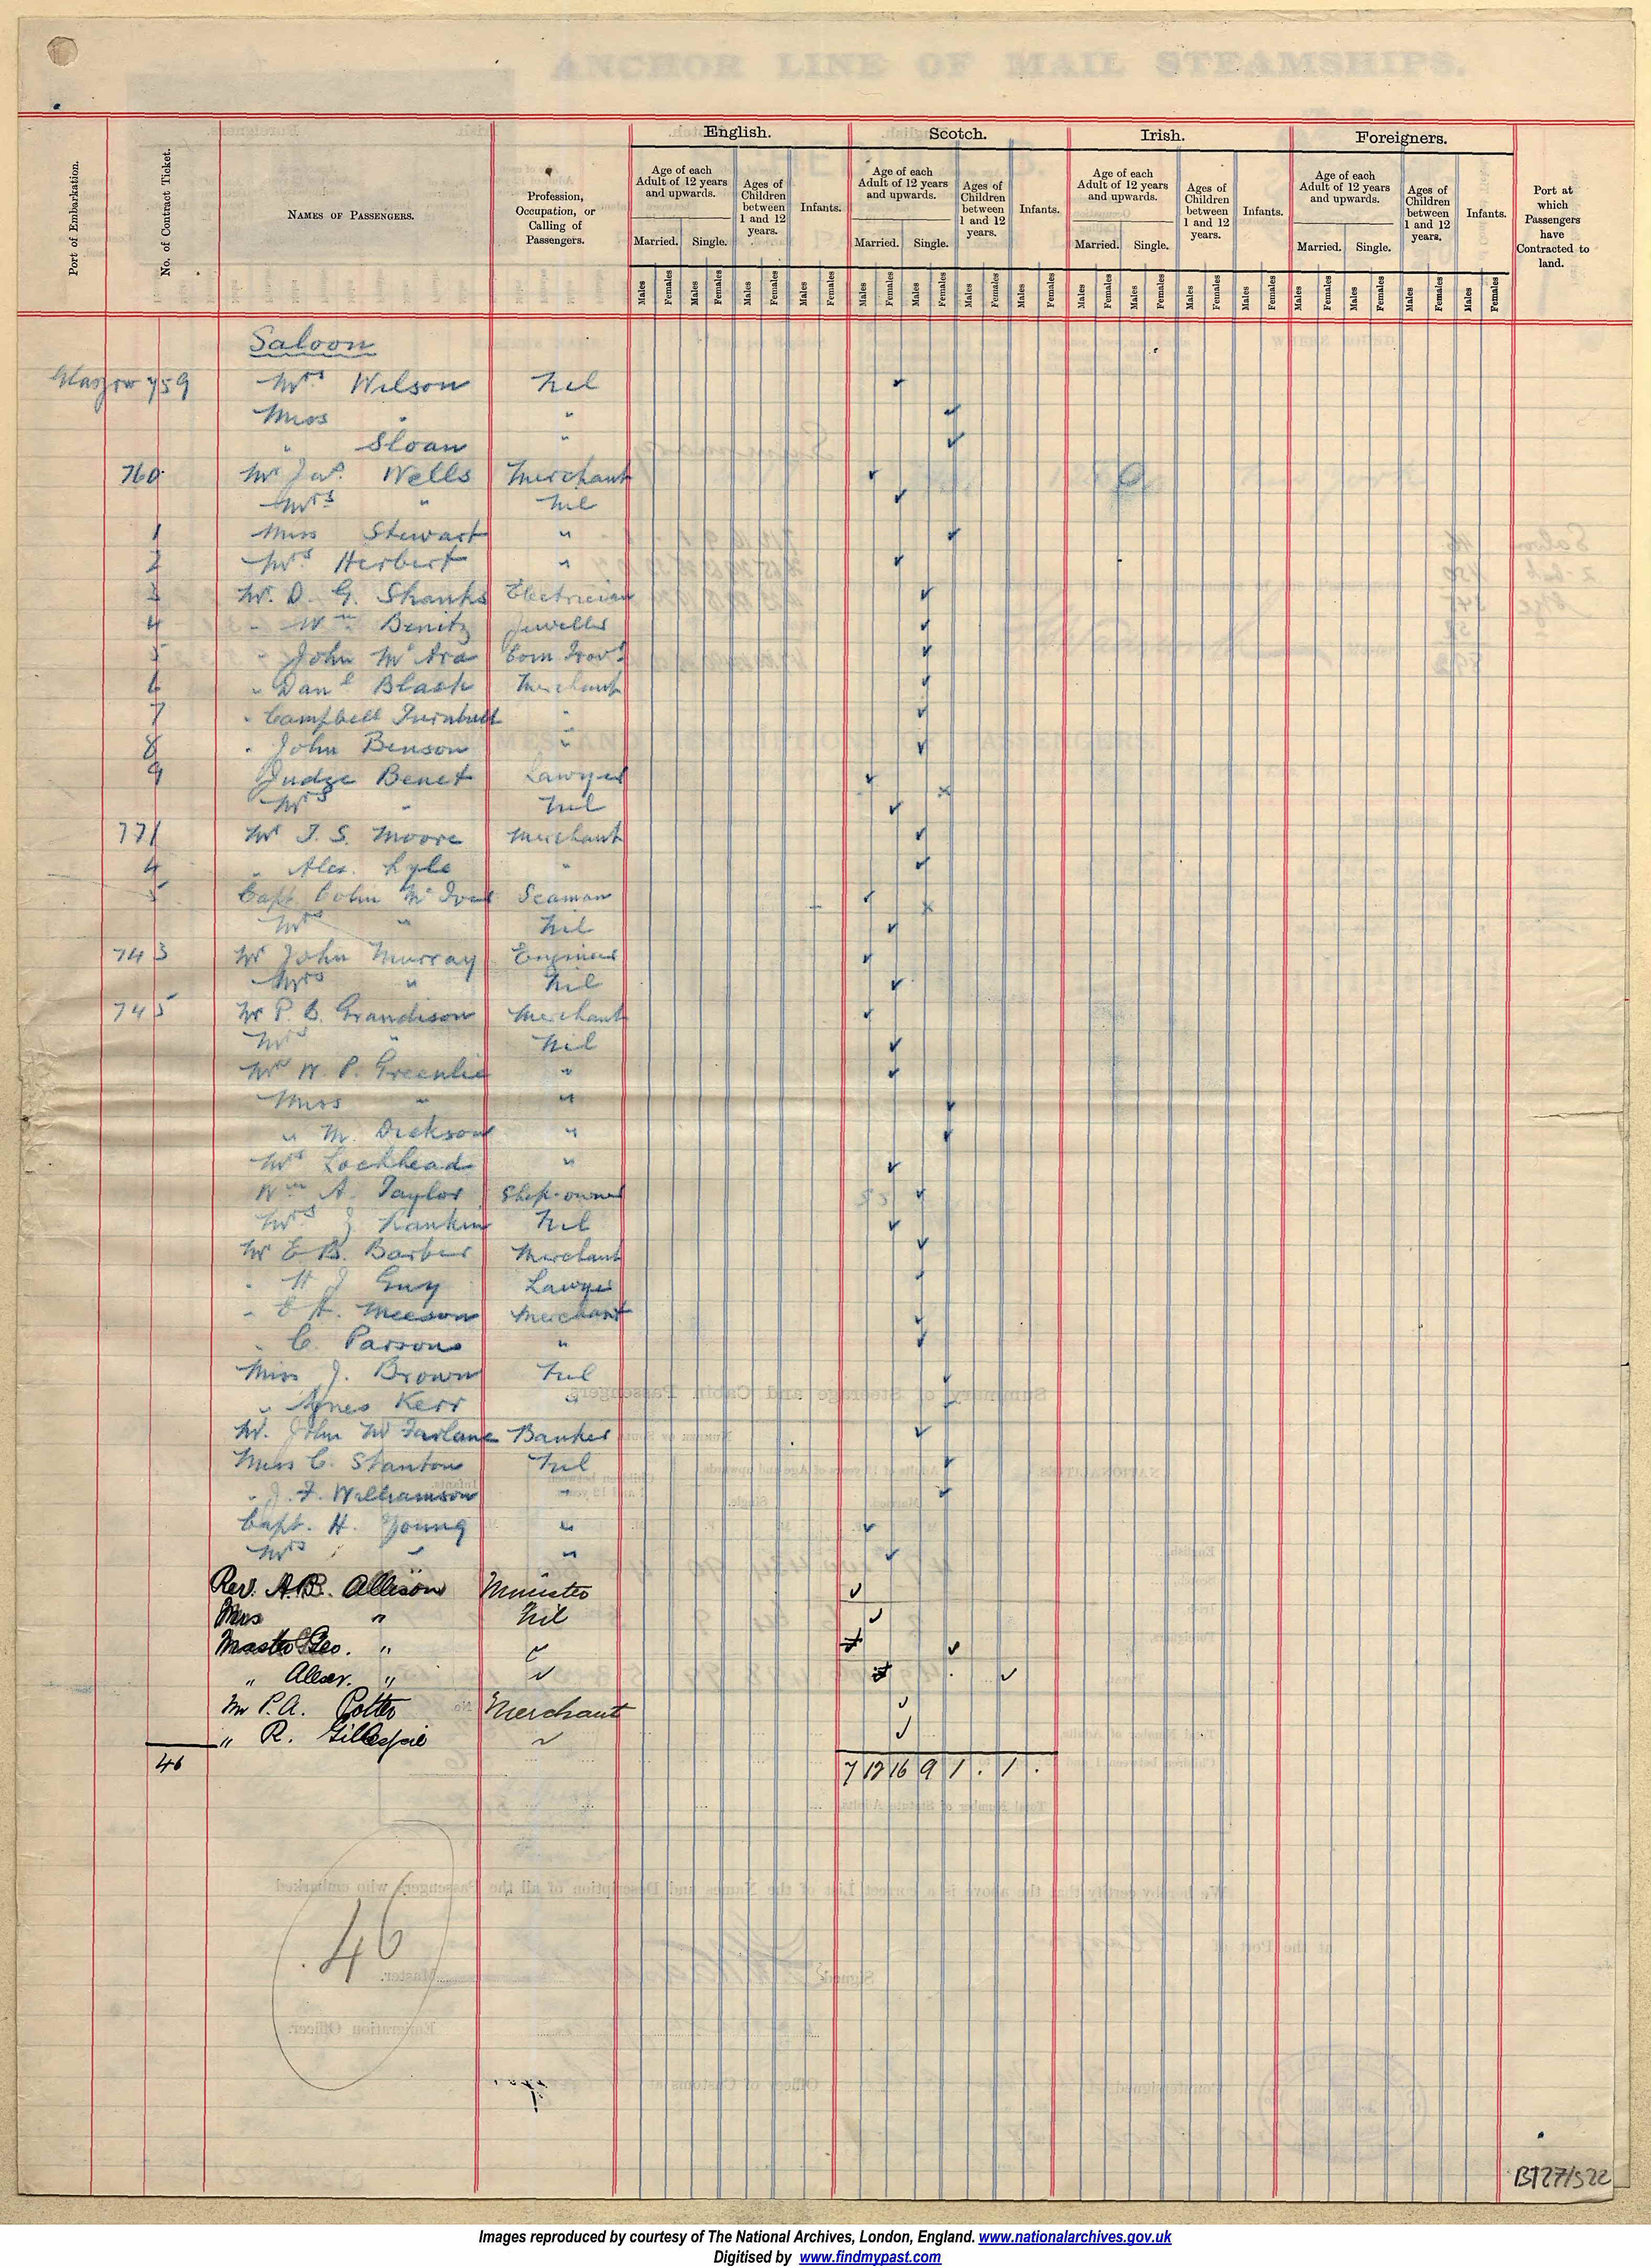 ANCHOR LINE OF MAIL STEAMSHIPS.
English. Scotch. Irish. Foreigners.
Port of Embarkation.
No. of Contract Ticket.
NAMES OF PASSENGERS.
Profession, Occupation, or Calling of Passengers.
Age of each Adult of 12 years and upwards.
Married. Single.
Ages of Children between 1 and 12 years.
Infants.
Age of each Adult of 12 years and upwards.
Married. Single.
Ages of Children between 1 and 12 years.
Infants.
Age of each Adult of 12 years and upwards.
Married. Single.
Ages of Children between 1 and 12 years.
Infants.
Age of each Adult of 12 years and upwards.
Married. Single.
Ages of Children between 1 and 12 years.
Infants.
Port at which Passengers have Contracted to land.
Males Females Males Females Males Females Males Females Males Females Males Females Males Females Males Females Males Females Males Females Males Females Males Females Males Females Males Females Males Females Males Females
Saloon
Glasgow 759 Mrs Wilson Nil
Miss " "
" Sloan "
760 Mr Jas. Wells Merchant
Mrs " Nil
1 Miss Stewart "
2 Mrs Herbert "
3 Mr. D. G. Shanks Electrician
4 " Wm Benitz Jeweller
5 " John McAra Com Trav
6 " Danl Black Merchant
7 " Campbell Turnbull "
8 " John Benson "
9 Judge Benet Lawyer
Mrs " Nil
771 Mr T. S. Moore Merchant
4 " Alex. Lyle "
5 Capt. Colin McIver Seaman
Mrs " Nil
743 Mr John Murray Engineer
Mrs " Nil
745 Mr P. B. Grandison Merchant
Mrs " Nil
Mrs W. P. Greenlie "
Miss " "
" M. Dickson "
Mrs Lochhead "
Wm A. Taylor Ship-owner
Mrs J Rankin Nil
Mr E B. Barber Merchant
" H J Guy Lawyer
" E H. Meeson Merchant
" C. Parsons "
Miss J. Brown Nil
" Agnes Kerr "
Mr. John McFarlane Banker
Miss C. Stanton Nil
" J. F. Williamson "
Capt. H. Young "
Mrs " "
Rev. A.B. Allison Minister
Mrs " Nil
Master Geo. " "
" Alexr. " "
Mr P.A. Potter Merchant
" R. Gillespie "
46 7 12 16 9 1 . 1 .
46
BT27/522
Images reproduced by courtesy of The National Archives, London, England. www.nationalarchives.gov.uk
Digitised by www.findmypast.com